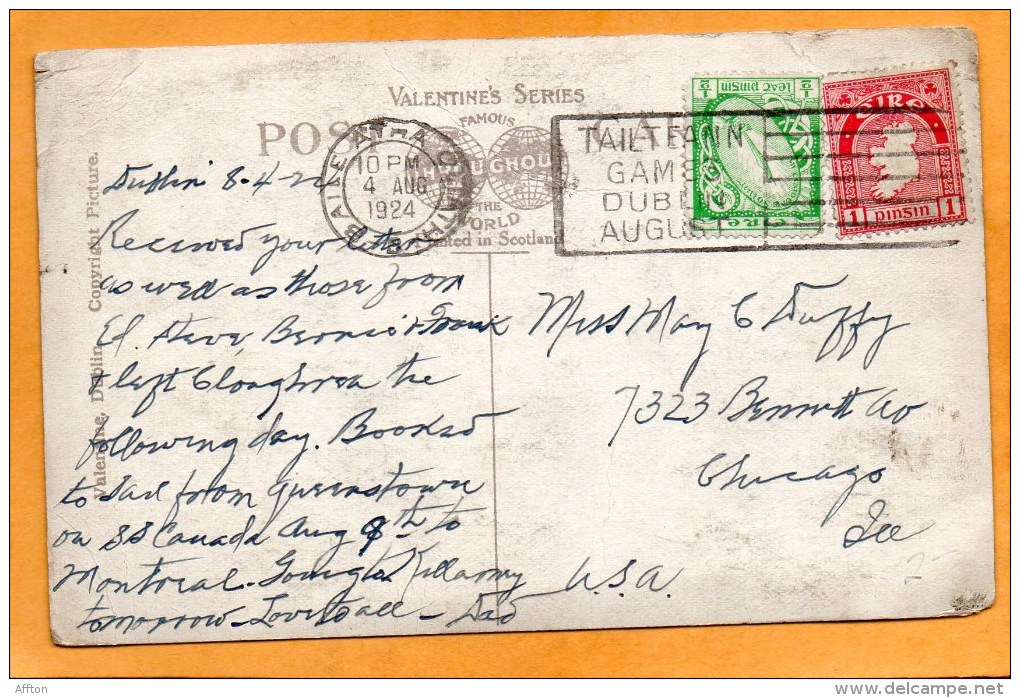 VALENTINE'S SERIES
FAMOUS
THROUGHOUT
THE
WORLD
Printed in Scotland
POST CARD
BAILE ÁTHA CLIATH
10 PM
4 AUG
1924
TAILTEANN
GAMES
DUBLIN
AUGUST
½ LEAC PINSIN ½
eire
eire
1 pinsin 1
Valentine, Dublin. Copyright Picture.
Dublin 8-4-24
Received your letter
as well as those from
Ed, Steve, Bernie & Frank
& left Cloughroa the
following day. Booked
to Sail from Queenstown
on SS Canada Aug 9th to
Montreal - Going to Killarney
tomorrow - Love to all - Dad
Miss May C Duffy
7323 Bennett Av
Chicago
Ill
U.S.A.
Affton
delcampe.net